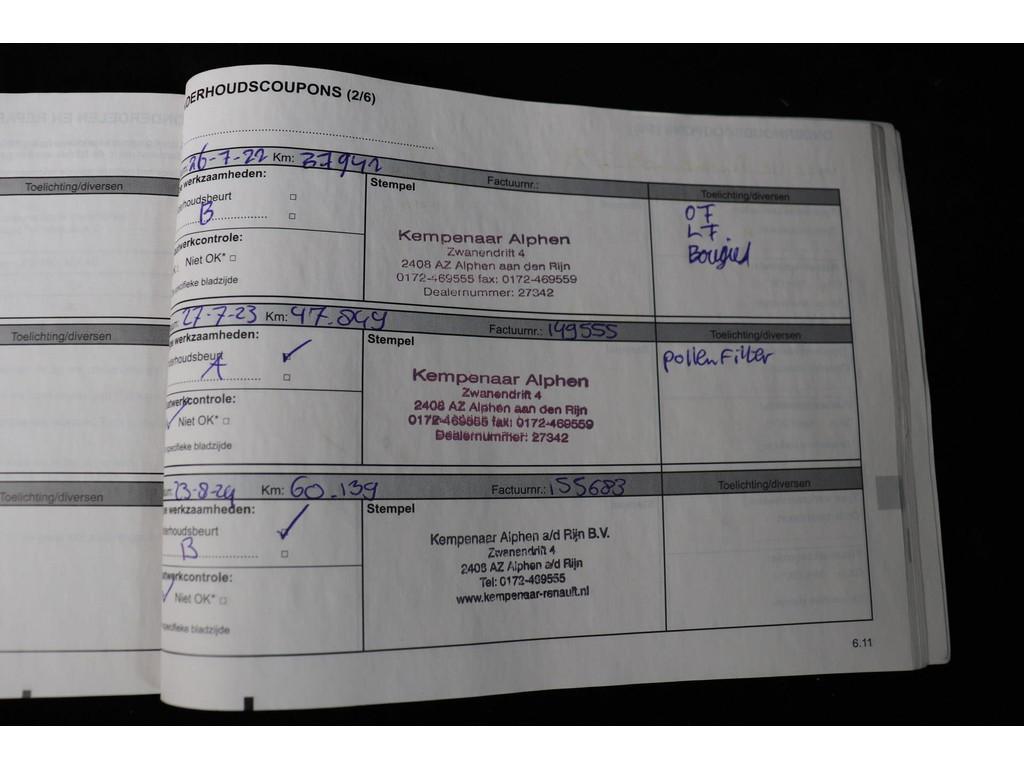 DERHOUDSCOUPONS (2/6)
Toelichting/diversen
26-7-22 Km: 37942
werkzaamheden:
Stempel
Factuurnr.:
Toelichting/diversen
erhoudsbeurt
B
werkcontrole:
Niet OK*
specifieke bladzijde
Kempenaar Alphen
Zwanendrift 4
2408 AZ Alphen aan den Rijn
0172-469555 fax: 0172-469559
Dealernummer: 27342
OF
LF.
Bougied
Toelichting/diversen
27-7-23 Km: 47.849
werkzaamheden:
Stempel
Factuurnr.: 149555
Toelichting/diversen
erhoudsbeurt
A
werkcontrole:
Niet OK*
specifieke bladzijde
Kempenaar Alphen
Zwanendrift 4
2408 AZ Alphen aan den Rijn
0172-469555 fax: 0172-469559
Dealernummer: 27342
pollenFilter
Toelichting/diversen
23-8-24 Km: 60.139
werkzaamheden:
Stempel
Factuurnr.: 155683
Toelichting/diversen
erhoudsbeurt
B
werkcontrole:
Niet OK*
specifieke bladzijde
Kempenaar Alphen a/d Rijn B.V.
Zwanendrift 4
2408 AZ Alphen a/d Rijn
Tel: 0172-469555
www.kempenaar-renault.nl
6.11